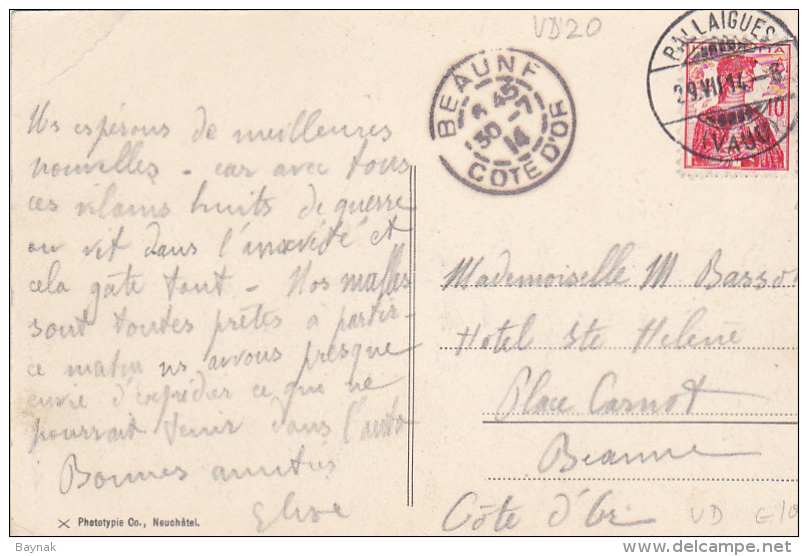 VD20
BALLAIGUES
29.VII.14.-8
(VAUD)
HELVETIA
10
BEAUNE
30 -7
14
COTE D'OR
Ns espérons de meilleures
nouvelles - car avec tous
ces vilains bruits de guerre
on vit dans l'anxiété et
cela gâte tout - Nos malles
sont toutes prêtes à partir -
ce matin ns avons presque
envie d'expédier ce que ne
pourrait tenir dans l'auto
Bonnes amitiés
Elise
Mademoiselle M Bassot
Hotel Ste Hélène
Place Carnot
Beaune
Côte d'Or
VD
Phototypie Co., Neuchâtel.
Baynak
www.delcampe.net